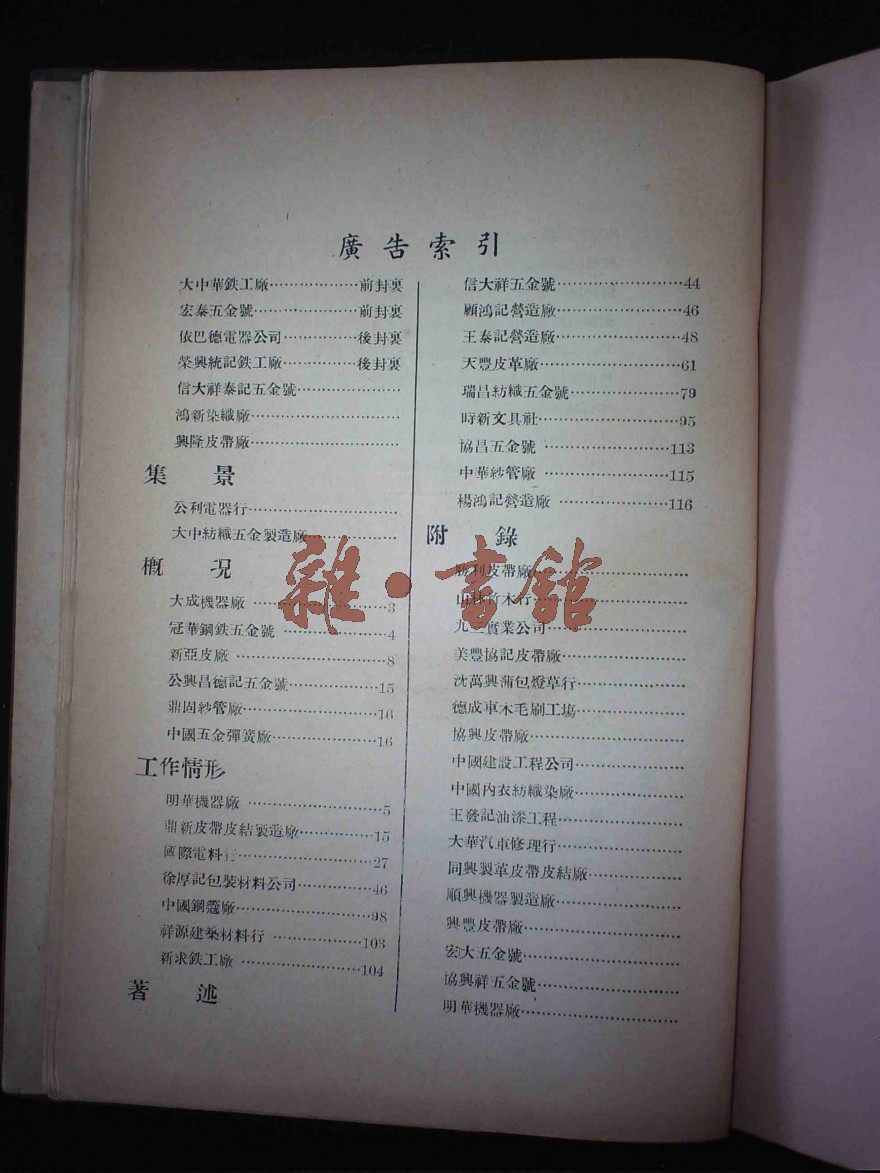 廣告索引
大中華鉄工廠………………前封裏
宏泰五金號…………………前封裏
依巴德電器公司……………後封裏
榮興統記鉄工廠……………後封裏
信大祥泰記五金號…………………
鴻新染織廠…………………………
興隆皮帶廠…………………………
集景
公利電器行…………………………
大中紡織五金製造廠………………
概况
大成機器廠…………………3
冠華鋼鉄五金號……………4
新亞皮廠……………………8
公興昌德記五金號…………15
鼎固紗管廠…………………16
中國五金彈簧廠……………16
工作情形
明華機器廠…………………5
鼎新皮帶皮結製造廠………15
國際電料行…………………27
徐厚記包裝材料公司………46
中國鋼蔻廠…………………98
祥源建築材料行……………103
新求鉄工廠…………………104
著述
信大祥五金號………………44
顧鴻記營造廠………………46
王泰記營造廠………………48
天豐皮革廠…………………61
瑞昌紡織五金號……………79
時新文具社…………………95
協昌五金號…………………113
中華紗管廠…………………115
楊鴻記營造廠………………116
附錄
勝利皮帶廠…………………
山林竹木行…………………
九二實業公司………………
美豐協記皮帶廠……………
沈萬興蒲包燈草行…………
德成車木毛刷工場…………
協興皮帶廠…………………
中國建設工程公司…………
中國內衣紡織染廠…………
王發記油漆工程……………
大華汽車修理行……………
同興製革皮帶皮結廠………
順興機器製造廠……………
興豐皮帶廠…………………
宏大五金號…………………
協興祥五金號………………
明華機器廠…………………
雜·書館